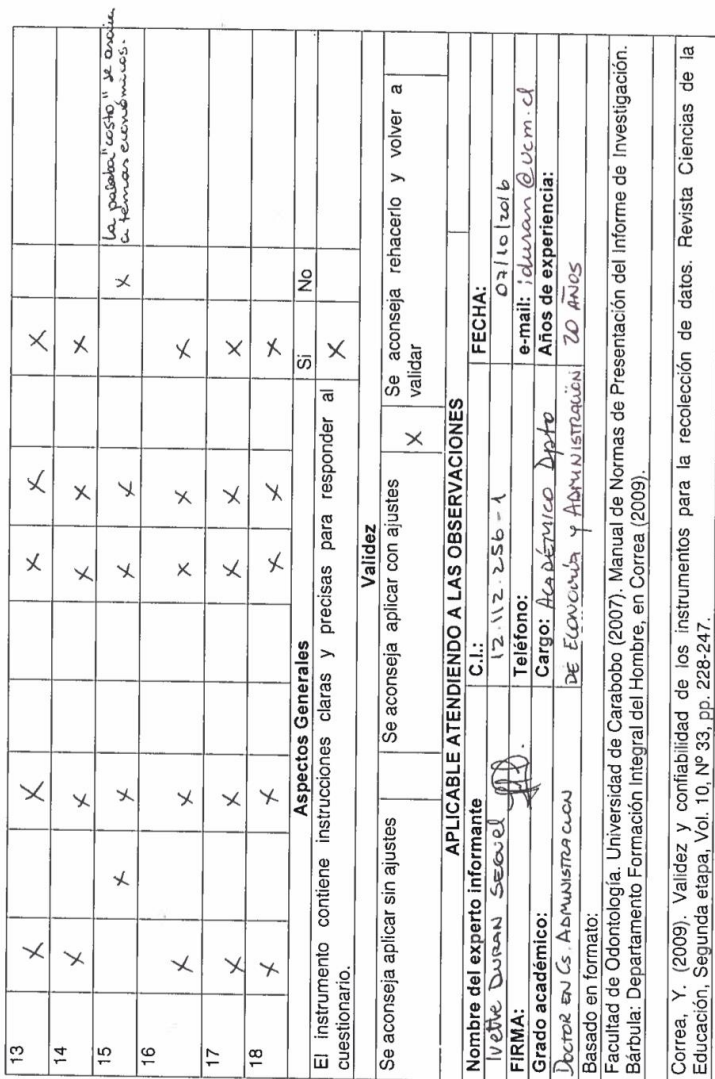 13 X X X X X
14 X X X X X
15 X X X X X La palabra "costo" se asocia
a temas económicos.
16 X X X X X
17 X X X X X
18 X X X X X
Aspectos Generales Si No
El instrumento contiene instrucciones claras y precisas para responder al X
cuestionario.
Validez
Se aconseja aplicar sin ajustes Se aconseja aplicar con ajustes X Se aconseja rehacerlo y volver a
validar
APLICABLE ATENDIENDO A LAS OBSERVACIONES
Nombre del experto informante C.I.: FECHA:
Ivette DURAN SEGUEL 12.112.256-1 07/10/2016
FIRMA: Teléfono: e-mail: iduran@ucm.cl
Grado académico: Cargo: ACADÉMICO Dpto Años de experiencia:
DOCTOR EN Cs. ADMINISTRACION DE ECONOMÍA y ADMINISTRACIÓN 20 AÑOS
Basado en formato:
Facultad de Odontología. Universidad de Carabobo (2007). Manual de Normas de Presentación del Informe de Investigación.
Bárbula: Departamento Formación Integral del Hombre, en Correa (2009).
Correa, Y. (2009). Validez y confiabilidad de los instrumentos para la recolección de datos. Revista Ciencias de la
Educación, Segunda etapa, Vol. 10, Nº 33, pp. 228-247.